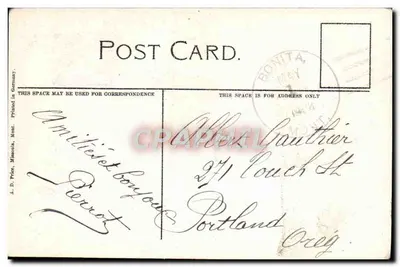 POST CARD.
BONITA,
MAY
1
MONT.
THIS SPACE MAY BE USED FOR CORRESPONDENCE
THIS SPACE IS FOR ADDRESS ONLY
A. D. Price, Missoula, Mont. Printed in Germany.
Amitiés et bonjour
Pierrot
Gauthier
271 Couch St
Portland
Oreg